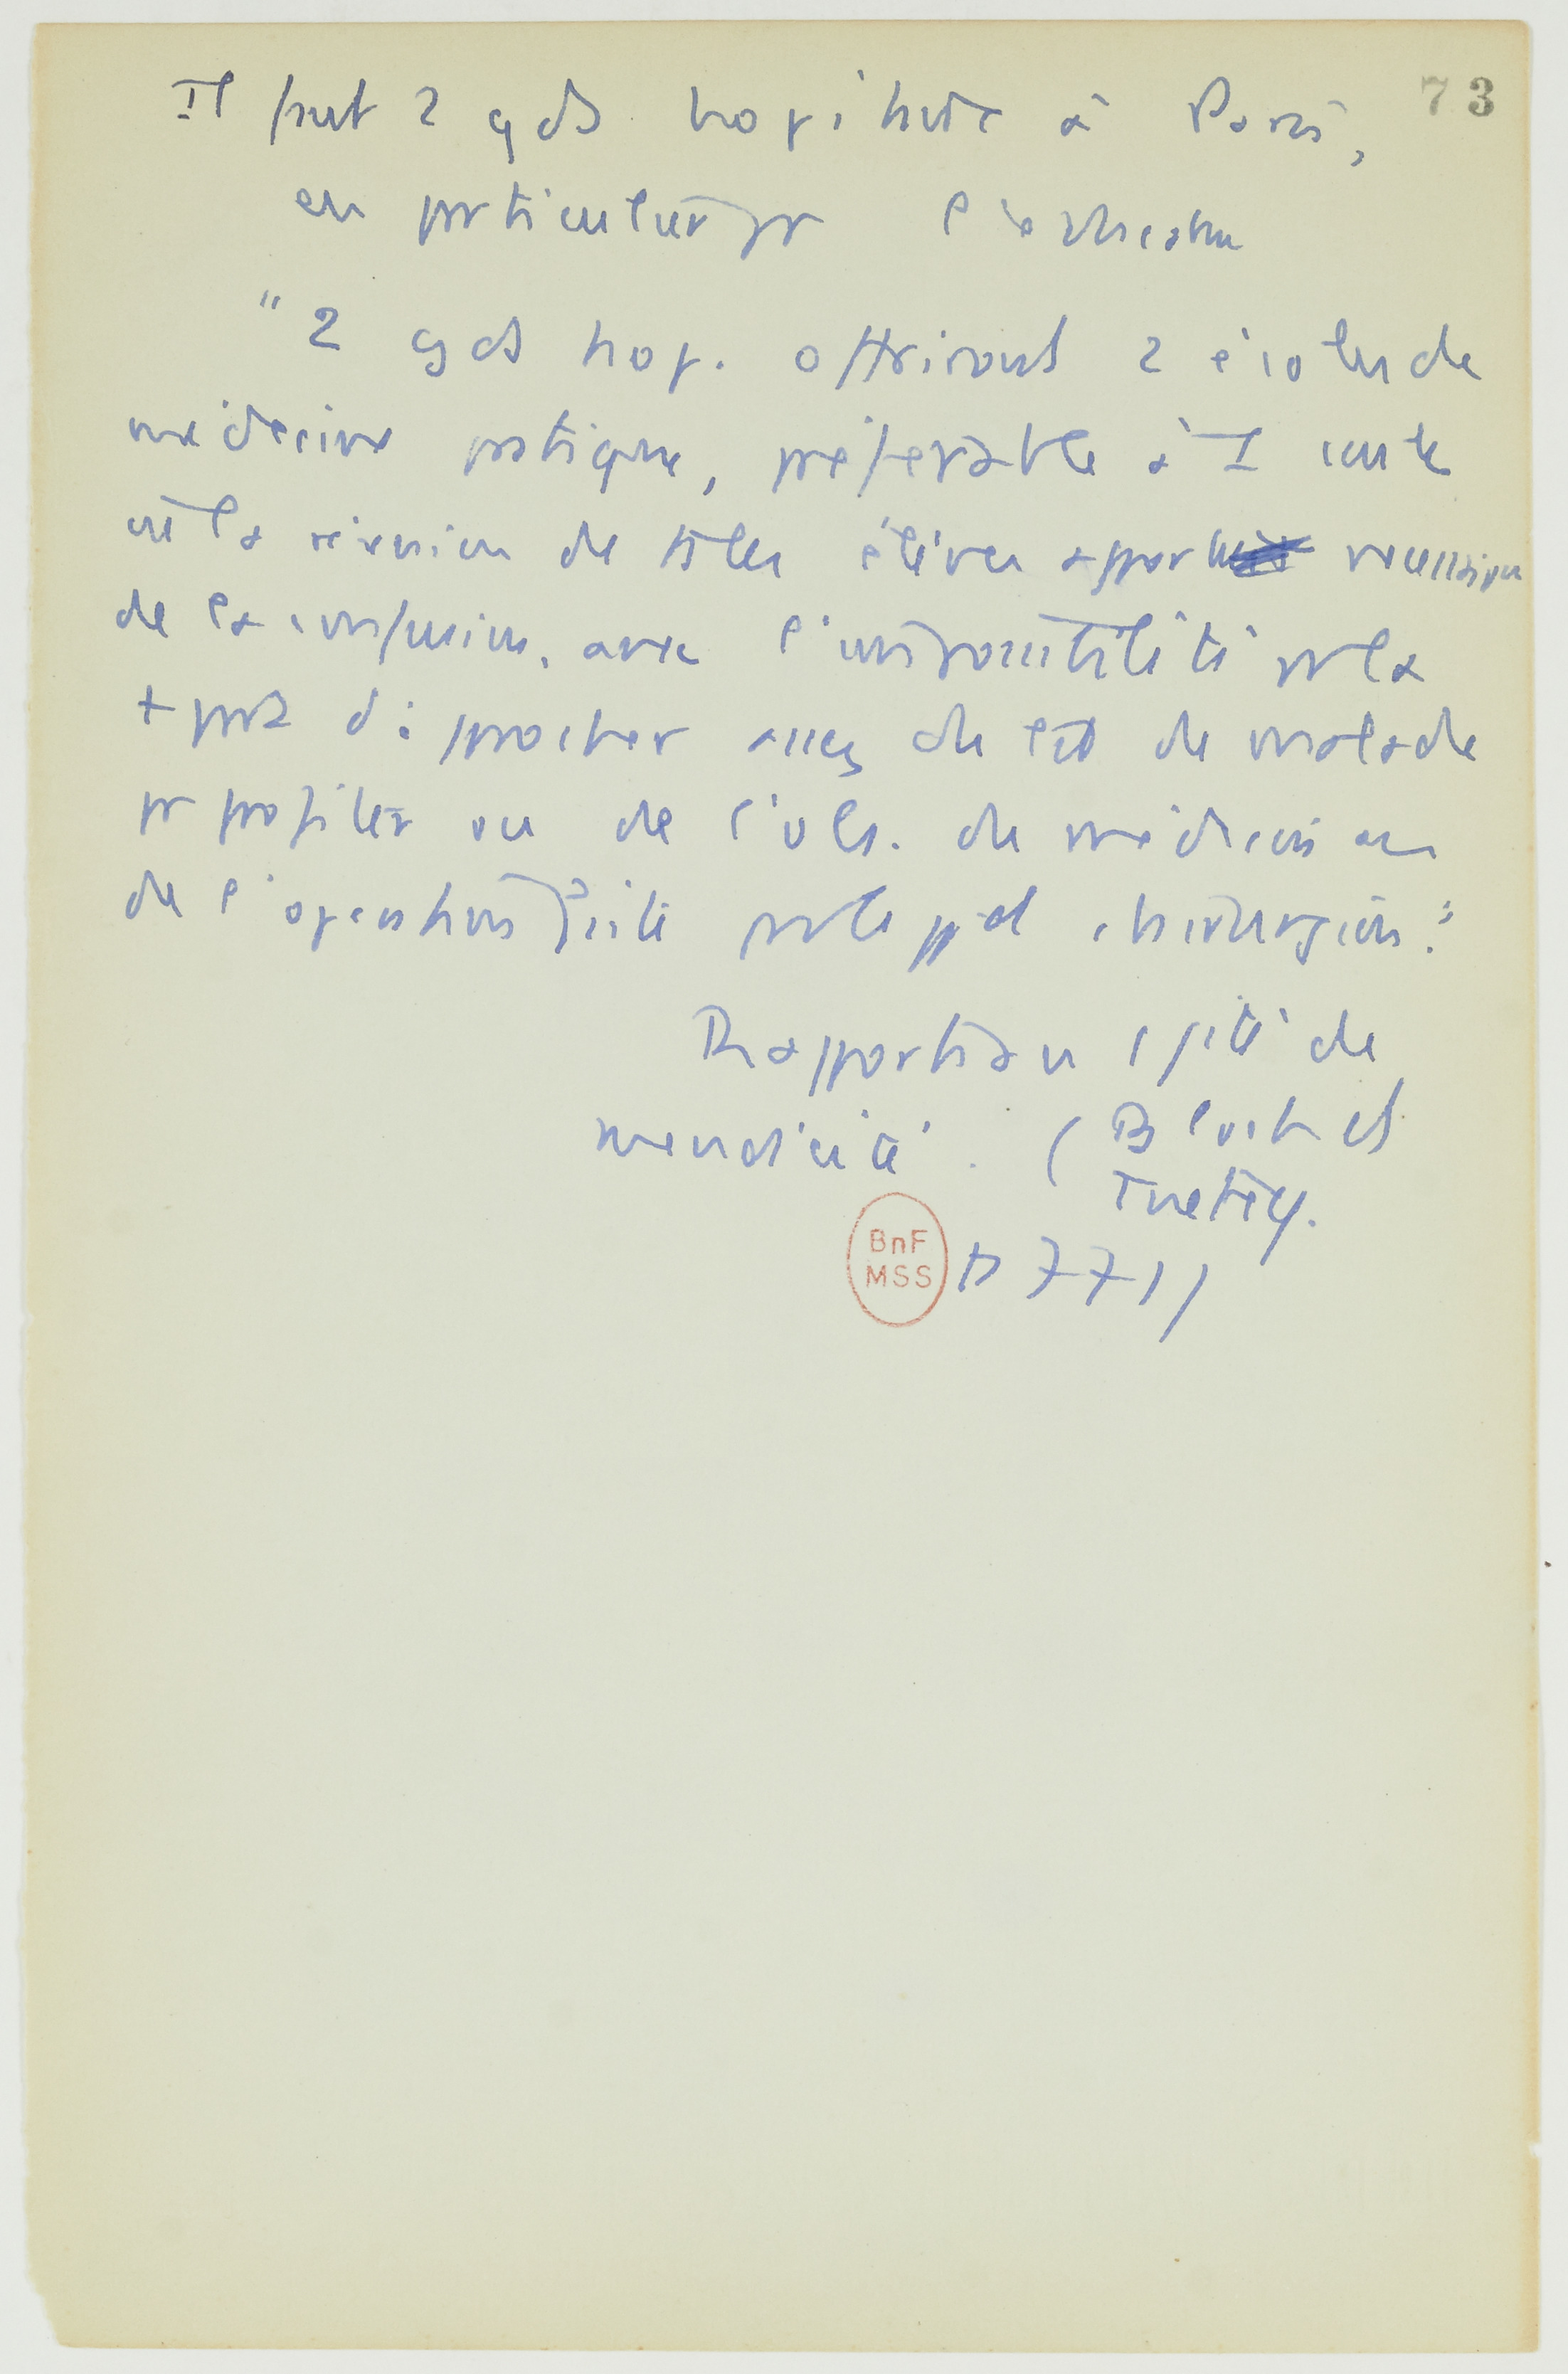 73
Il faut 2 gds hopitaux à Paris,
en particulier pr l'éducation
"2 gds hop. offriront 2 écoles de
médecine pratique, préférable à 1 seule
où la réunion de ts les élèves apporte nécessairt
de la confusion, avec l'impossibilité pr la
+ part d'approcher assez du lit de malade
pr profiter ou de l'obs. du médecin ou
de l'opération faite par le gd chirurgien."
Rapport au Cité de
mendicité. (Bloch et
Tuetey.
p 771)
BnF
MSS